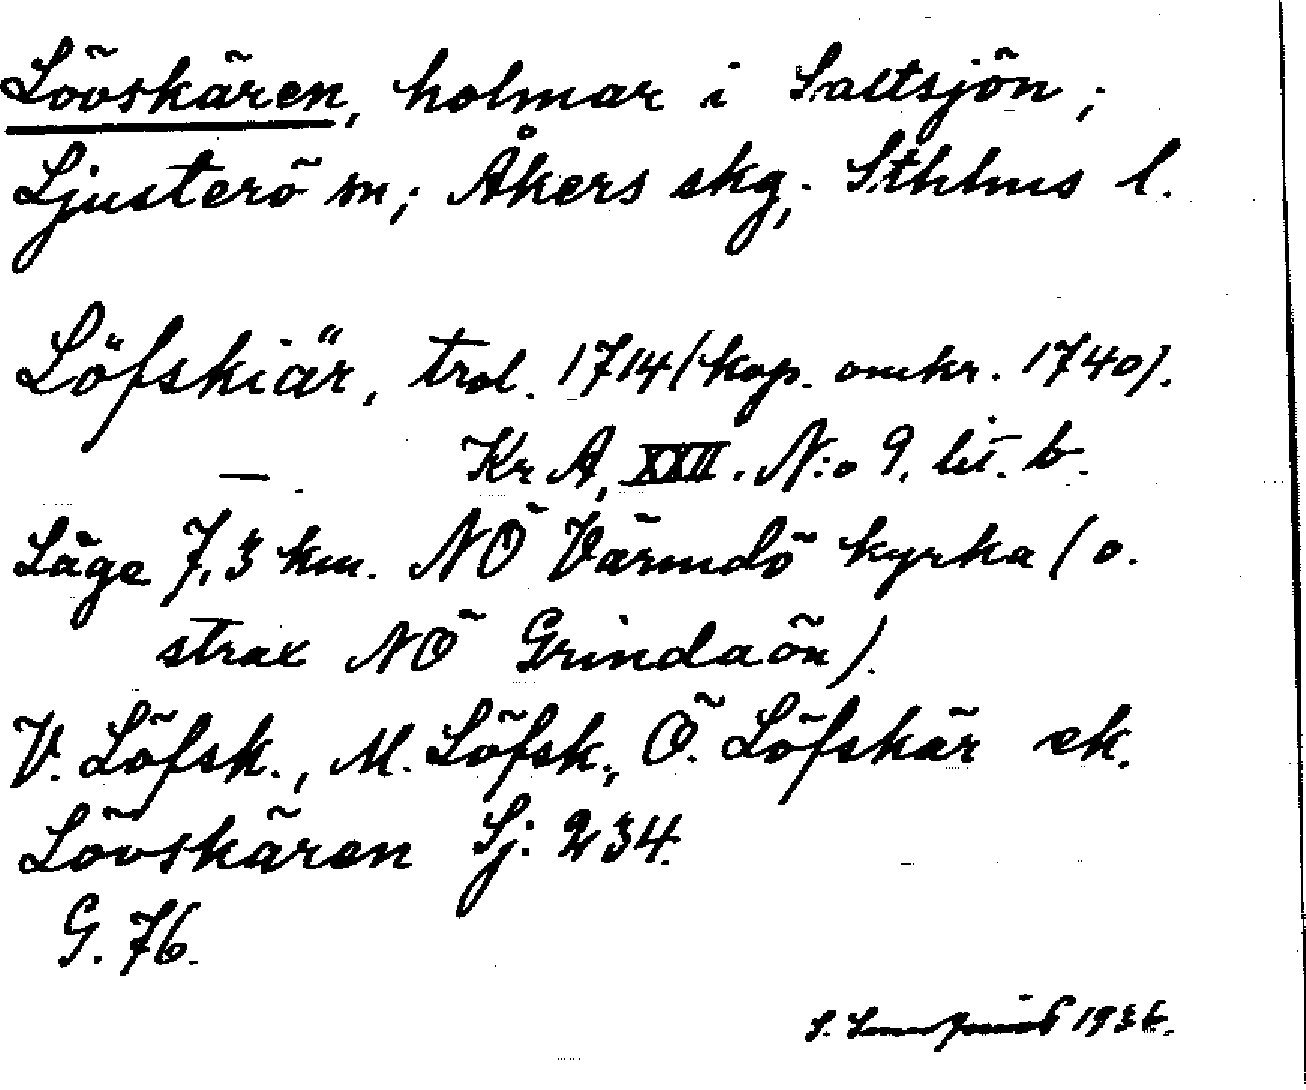 Lövskären, holmar i Saltsjön;
Ljusterö sn; Åkers skg; Sthlms l.
Löfskiär, trol. 1714 (kop. omkr. 1740).
— Kr A, XXII. N:o 9. lit. b.
Läge 7,3 km. NÖ Värmdö kyrka (o.
strax NÖ Grindaön).
V. Löfsk., M. Löfsk., Ö. Löfskär ek.
Lövskären Sj: 234.
G. 76.
S. 1936.